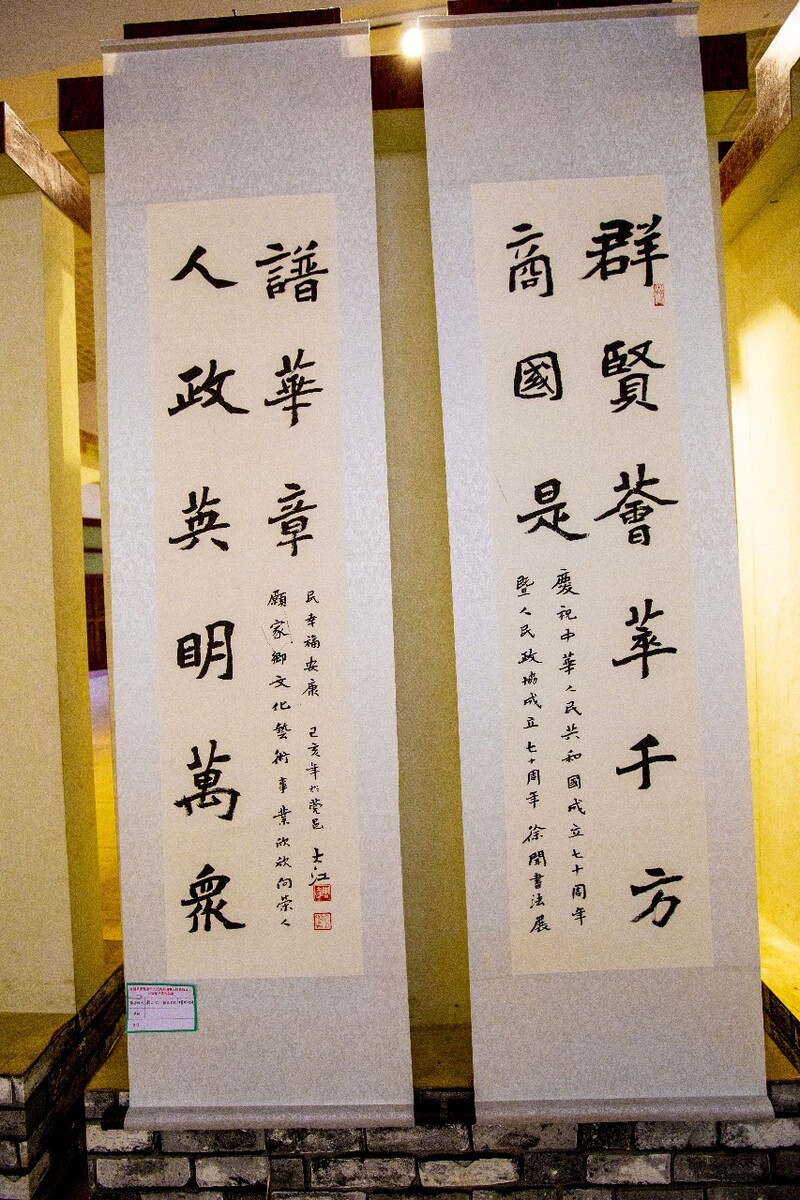 群賢薈萃千方
商國是
慶祝中華人民共和國成立七十周年
暨人民政協成立七十周年 徐聞書法展
人政英明萬衆
譜華章
願家鄉文化藝術事業欣欣向榮人
民幸福安康 己亥年於莞邑 江